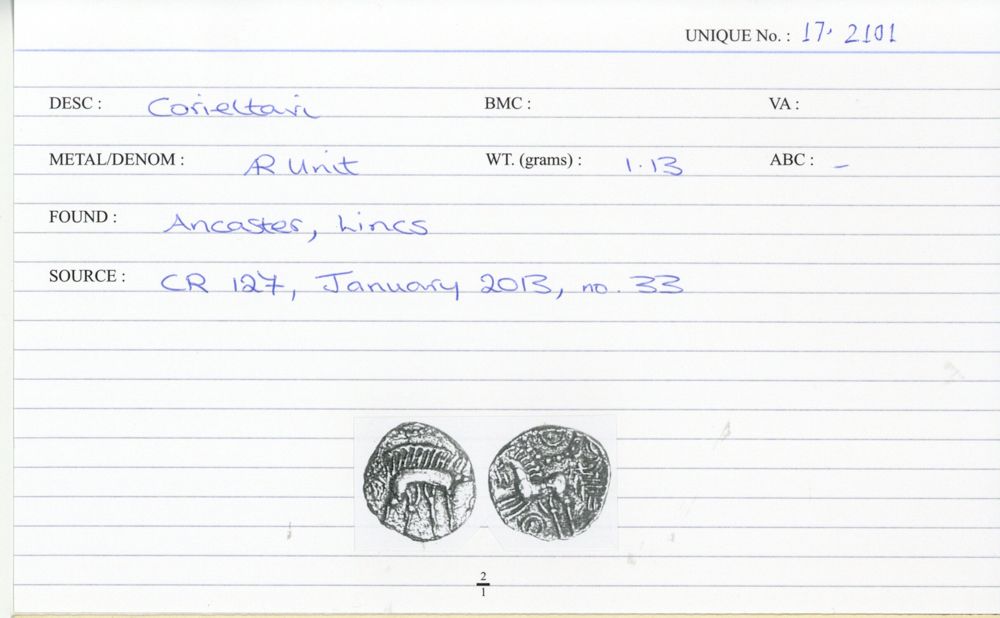 UNIQUE No. : 17. 2101
DESC : Corieltavi BMC : VA :
METAL/DENOM : AR Unit WT. (grams) : 1.13 ABC : -
FOUND : Ancaster, Lincs
SOURCE : CR 127, January 2013, no. 33
2
1